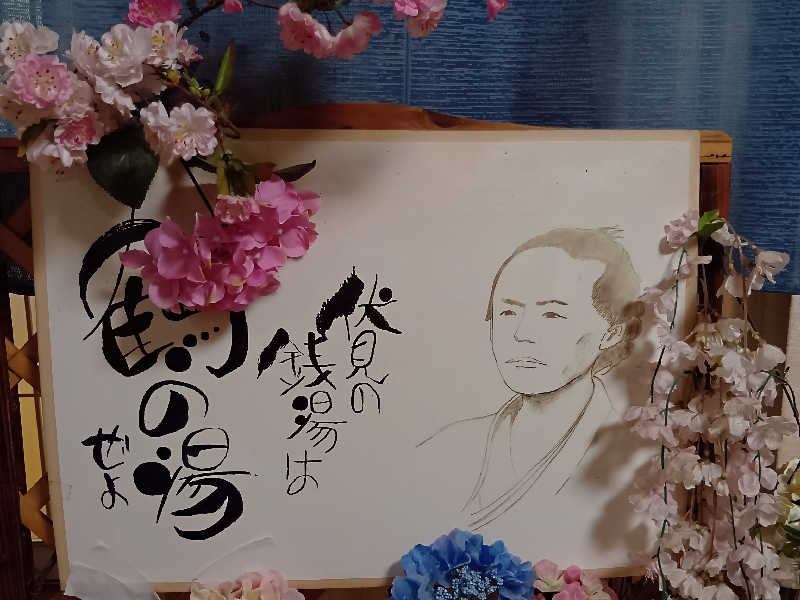 伏見の
銭湯は
鶴の湯
ぜよ